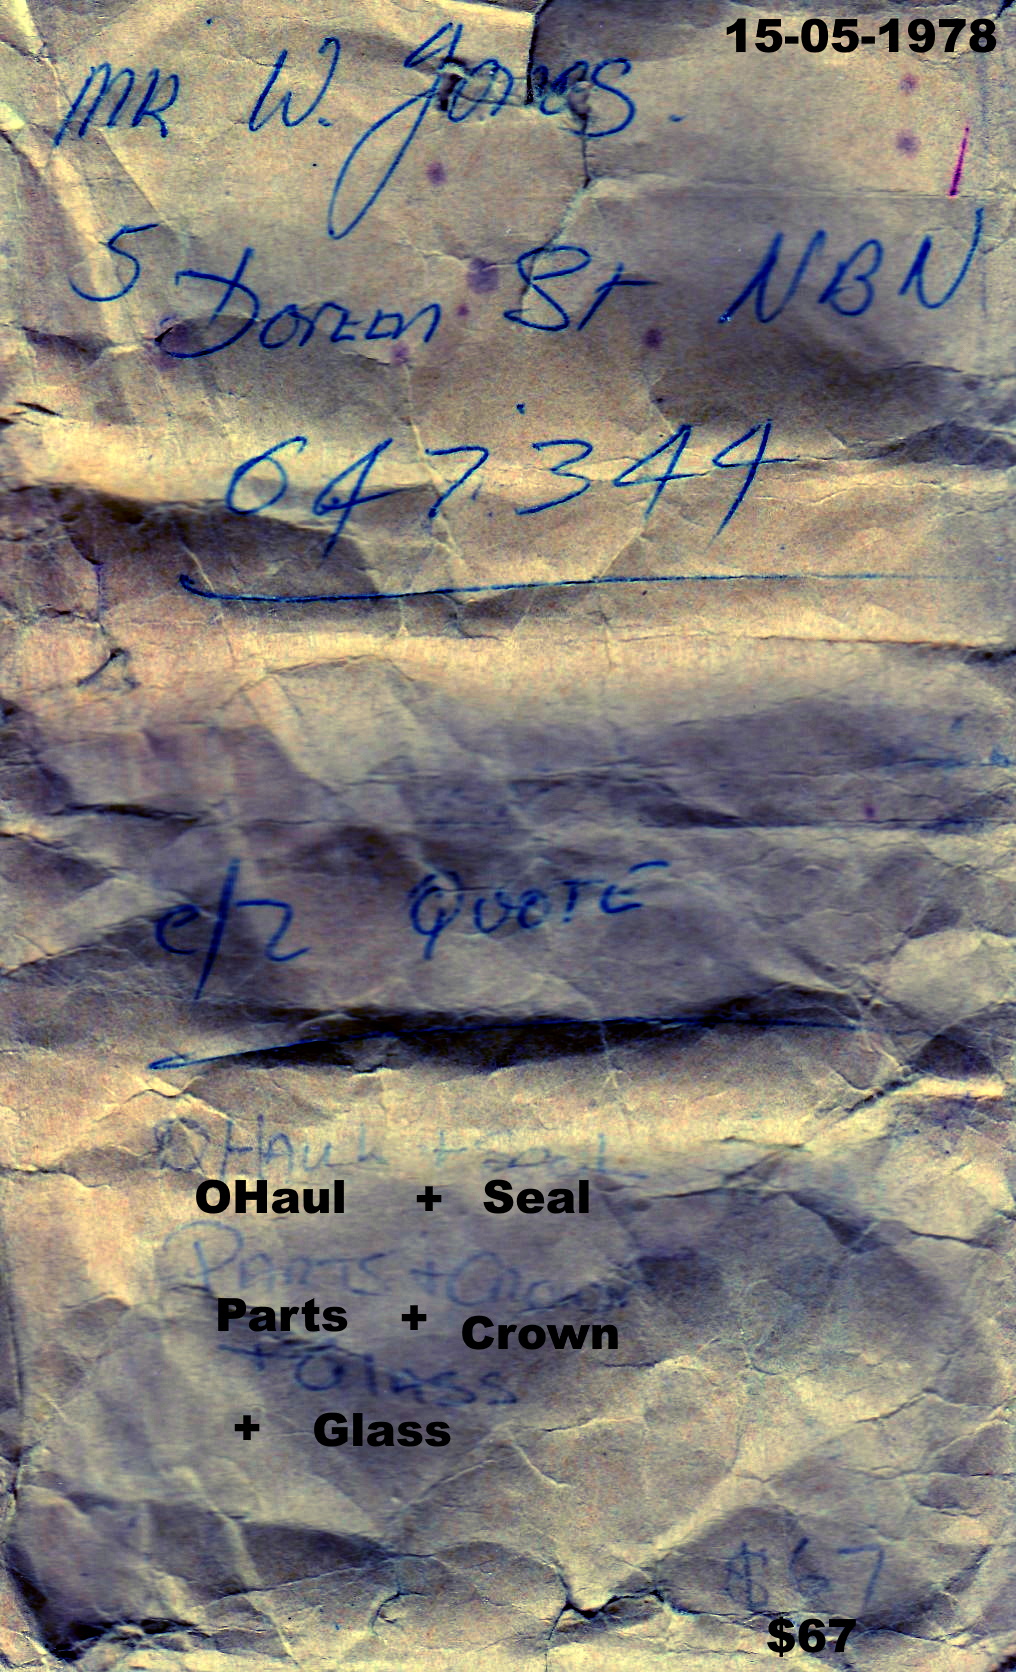 15-05-1978
MR W. Jones.
5 Doreen St NBN
647344
e/2 QUOTE
OHAUL + SEAL
OHaul + Seal
PARTS + CROWN
Parts + Crown
+ GLASS
+ Glass
$67
$67